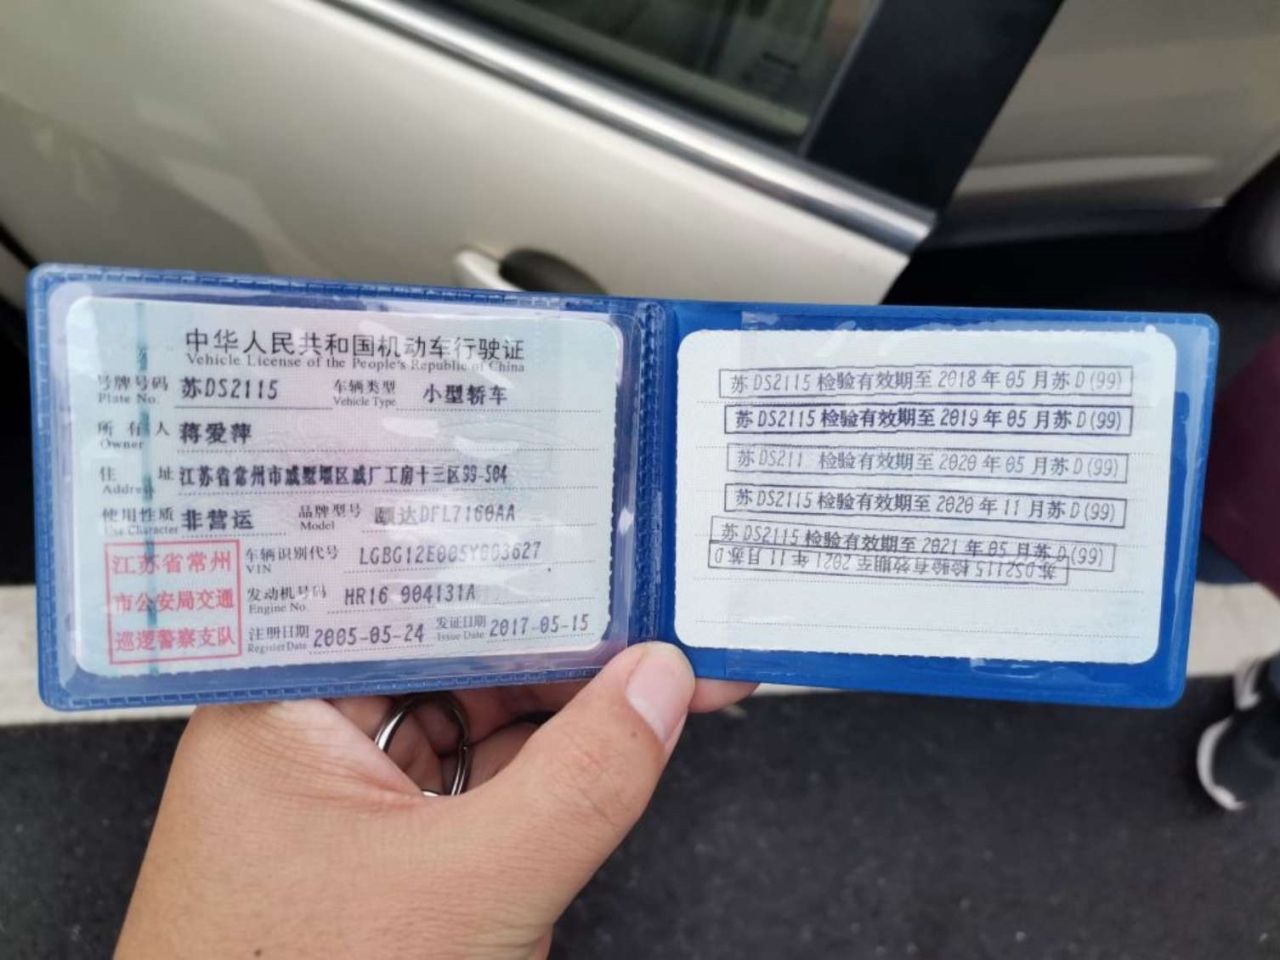 中华人民共和国机动车行驶证
Vehicle License of the People's Republic of China
号牌号码 苏DS2115 车辆类型 小型轿车
Plate No. Vehicle Type
所有人 蒋爱萍
Owner
住址 江苏省常州市戚墅堰区戚厂工房十三区99-504
Address
使用性质 非营运 品牌型号 颐达DFL7160AA
Use Character Model
江苏省常州
市公安局交通
巡逻警察支队
车辆识别代号 LGBG12E005Y003627
VIN
发动机号码 HR16 904131A
Engine No.
注册日期 2005-05-24 发证日期 2017-05-15
Register Date Issue Date
苏DS2115检验有效期至2018年05月苏D(99)
苏DS2115检验有效期至2019年05月苏D(99)
苏DS211 检验有效期至2020年05月苏D(99)
苏DS2115检验有效期至2020年11月苏D(99)
苏DS2115检验有效期至2021年05月苏D(99)
苏DS2115检验有效期至2021年11月苏D